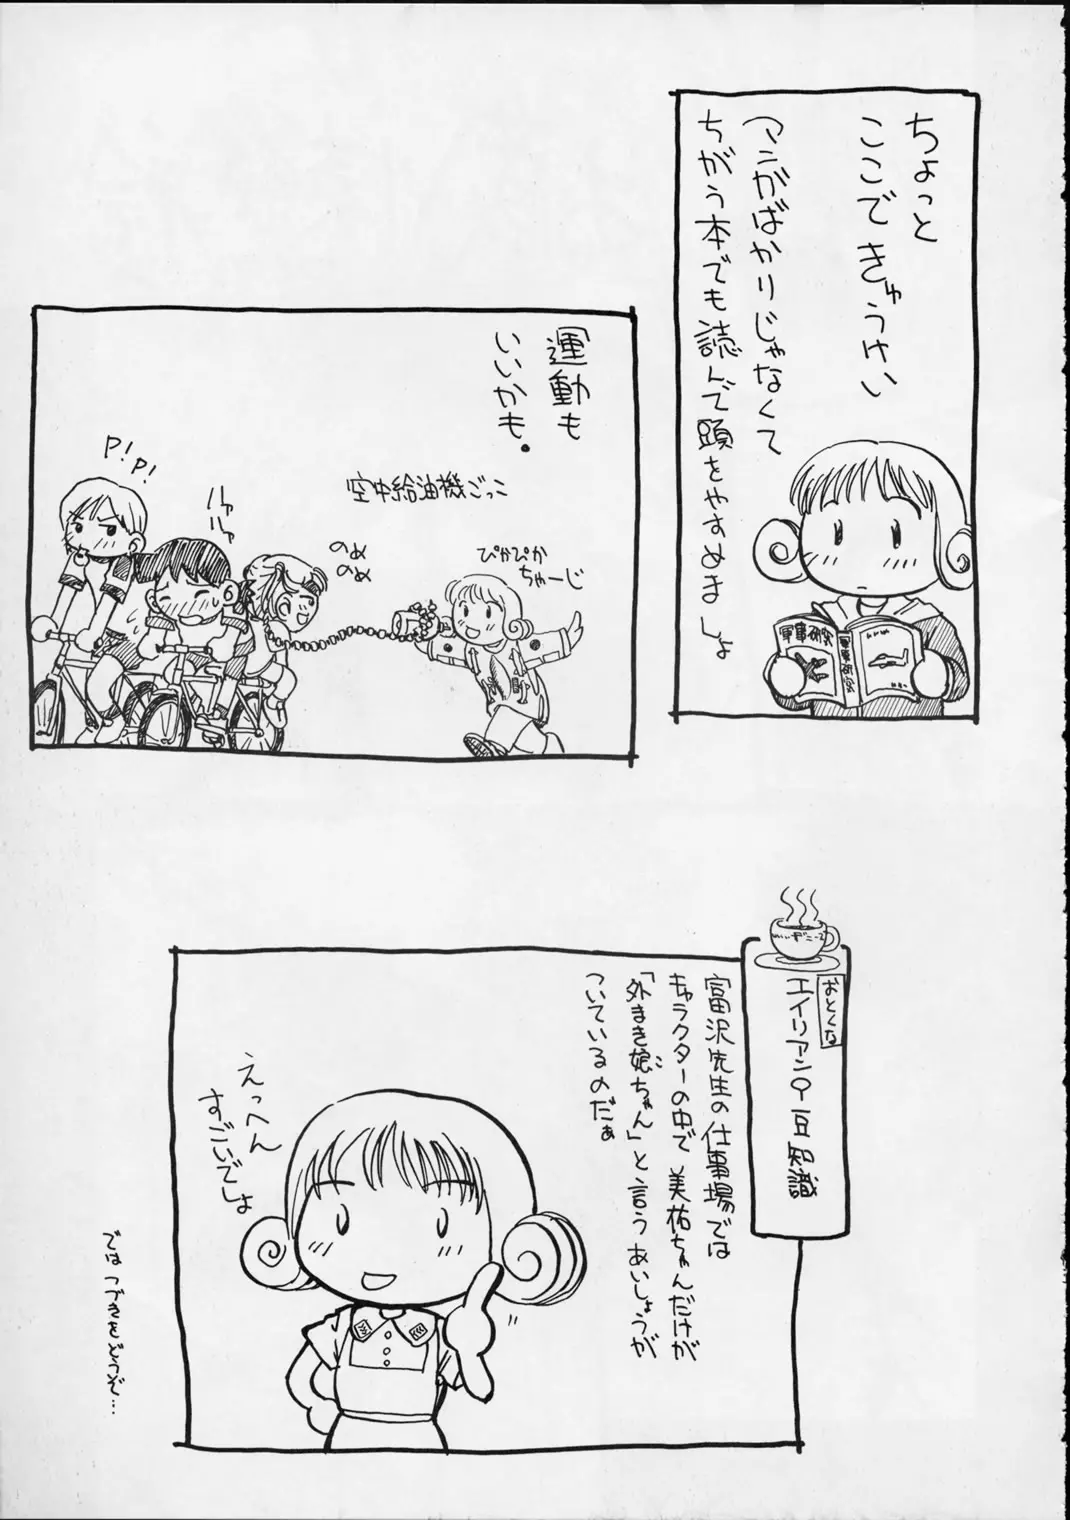 ちょっと
ここできゅうけい
マンガばかりじゃなくて
ちがう本でも読んで頭をやすめましょ
軍事研究
軍事研究
運動も
いいかも。
空中給油機ごっこ
ぴかぴか
ちゃーじ
のめ
のめ
ハァ
ハァ
P!P!
おとくな
エイリアン9豆知識
富沢先生の仕事場では
キャラクターの中で美祐ちゃんだけが
「外まき娘ちゃん」と言うあいしょうが
ついているのだぁ
えっへん
すごいでしょ
ではつづきをどうぞ…